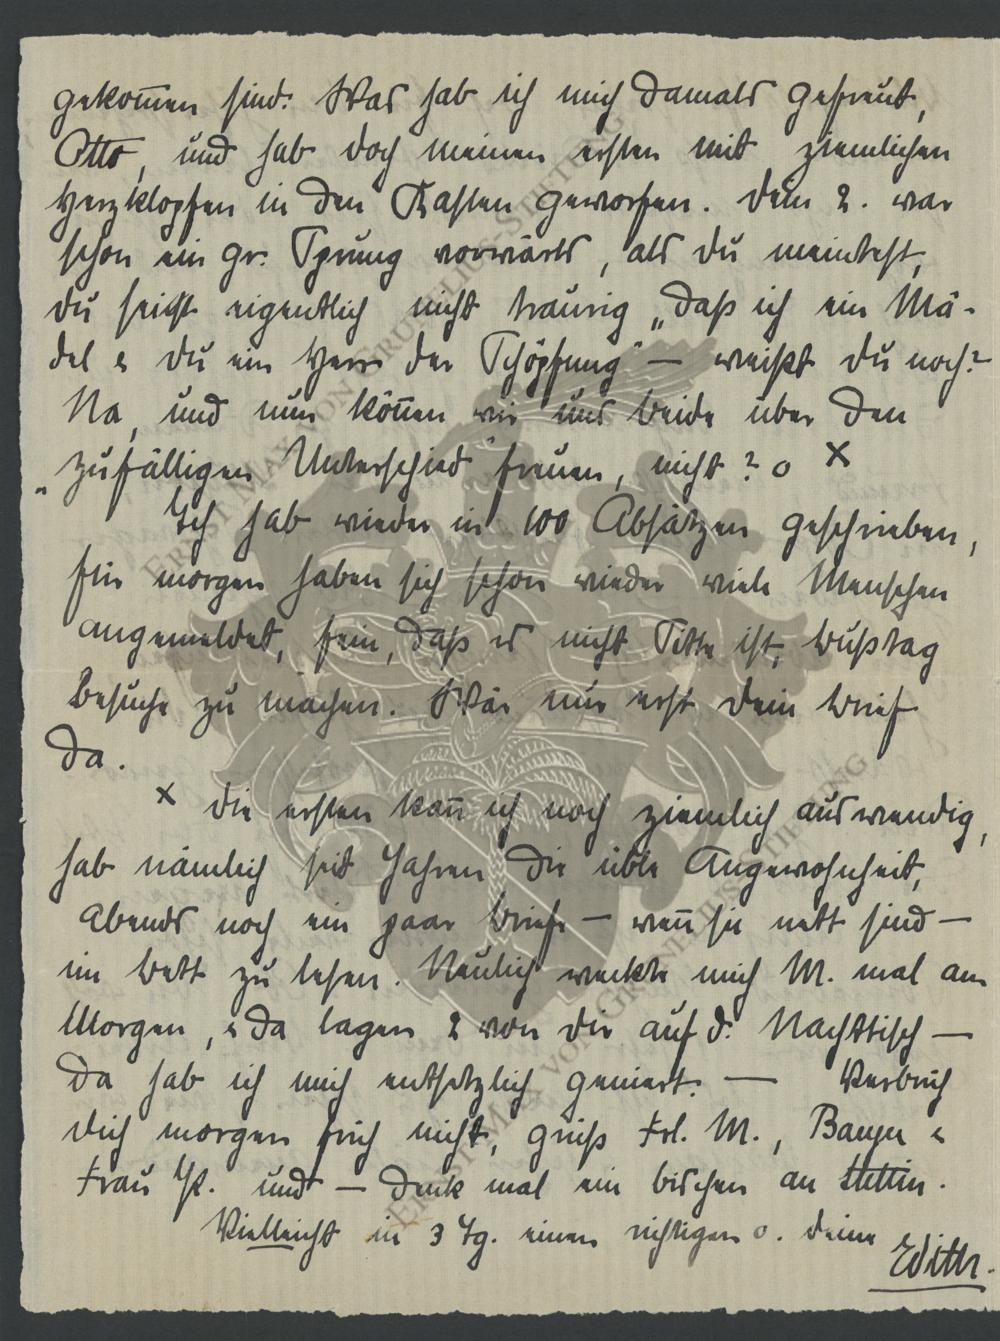 gekom̄en sind. Was hab ich mich damals gefreut,
Otto, und hab doch meinen ersten mit ziemlichen
Herzklopfen in den Kasten geworfen. Dein 2. war
schon ein gr. Sprung vorwärts, als du meintest,
du seist eigentlich nicht traurig „daß ich ein Mä-
del & du ein Herr der Schöpfung" — weißt du noch?
Na, und nun kön̄en wir uns beide über den
„zufälligen Unterschied" freuen, nicht? o x
Ich hab wieder in 100 Absätzen geschrieben,
für morgen haben sich schon wieder viele Menschen
angemeldet, fein, daß es nicht Sitte ist, Bußtag
Besuche zu machen. Wär nur erst dein Brief
da.
x Die ersten kan̄ ich noch ziemlich auswendig,
hab nämlich seit Jahren die üble Angewohnheit,
Abends noch ein paar Briefe — wen̄ sie nett sind —
im Bett zu lesen. Neulich weckte mich M. mal am
Morgen, & da lagen 2 von dir auf d. Nachttisch —
da hab ich mich entsetzlich geniert. —
dich morgen früh nicht, grüß Frl. M., &
Frau und — denk mal ein bischen an Stettin.
Vielleicht in 3 Tg. einen richtigen o. Deine
Edith.
ERNST MAX VON GRUNELIUS-STIFTUNG
ERNST MAX VON GRUNELIUS-STIFTUNG